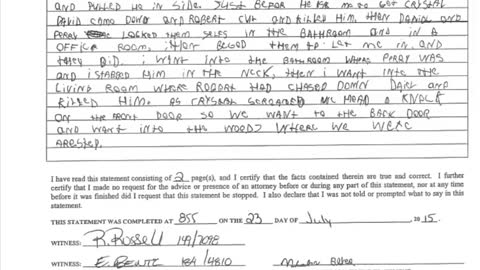 AND PULLED HE IN SIDE. JUST BEFOR HE
DAVID CAME DOWN AND ROBERT CUT AND KILLED HIM. THEN DANIEL AND
PERAY LOCKED THEM SELES IN THE BATHROOM AND IN A
OFFICE ROOM, I THEN BEGGD THEM TO LET ME IN. AND
THEY DID. I WENT INTO THE BATHROOM WHERE PERAY WAS
AND I STABBED HIM IN THE NECK, THEN I WANT INTO THE
LIVING ROOM WHERE ROBERT HAD CHASED DOWN AND
KILLED HIM. AS SCREAMED WE HEAD A KNOCK
ON THE FRONT DOOR SO WE WANT TO THE BACK DOOR
AND WANT INTO THE WOODZ WHERE WE WERE
ARESTED.
I have read this statement consisting of 2 page(s), and I certify that the facts contained therein are true and correct. I further
certify that I made no request for the advice or presence of an attorney before or during any part of this statement, nor at any time
before it was finished did I request that this statement be stopped. I also declare that I was not told or prompted what to say in this
statement.
THIS STATEMENT WAS COMPLETED AT 855 ON THE 23 DAY OF July 2015.
WITNESS: R. Russell 149/7098
WITNESS: 184/4810